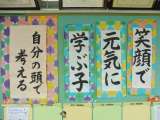 笑顔で
元気に
学ぶ子
自分の頭で
考える